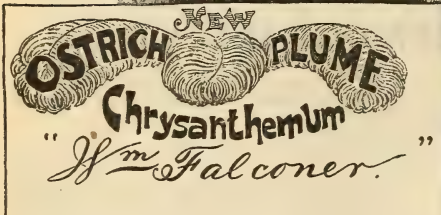 NEW
OSTRICH PLUME
Chrysanthemum
"Wm Falconer."